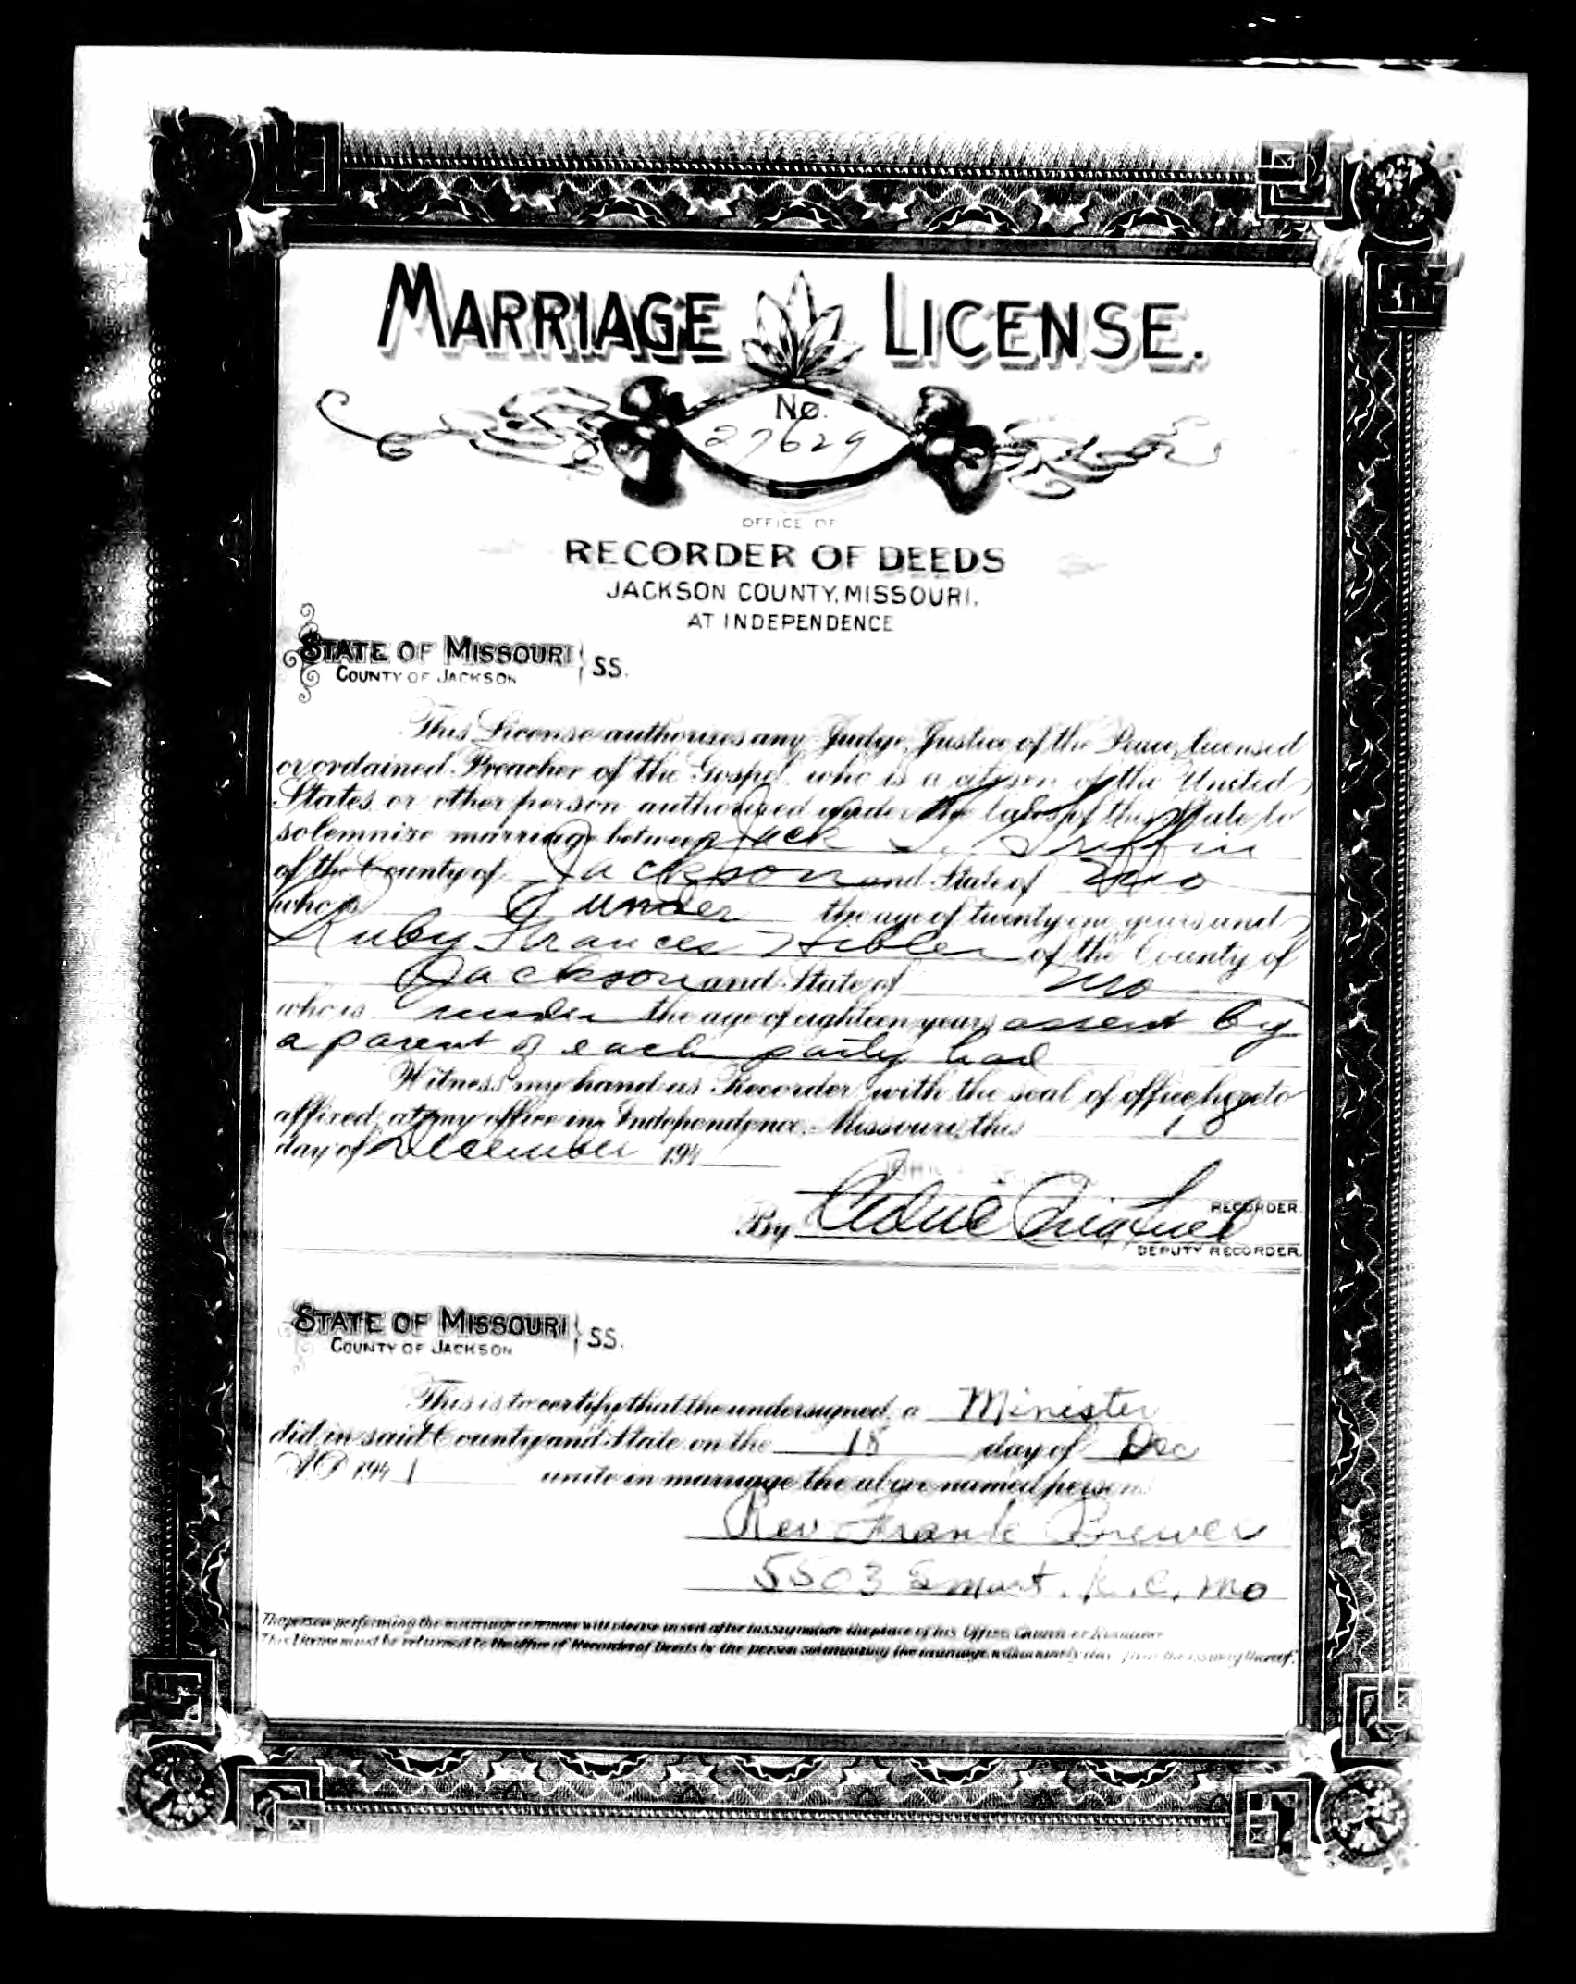 MARRIAGE LICENSE.
No.
27629
OFFICE OF
RECORDER OF DEEDS
JACKSON COUNTY, MISSOURI.
AT INDEPENDENCE
STATE OF MISSOURI
COUNTY OF JACKSON } SS.
This License authorizes any Judge, Justice of the Peace, licensed
or ordained Preacher of the Gospel, who is a citizen of the United
States, or other person authorized under the laws of this State, to
solemnize marriage between Jack S. Griffin
of the County of Jackson and State of Mo
who is under the age of twenty one years and
Ruby Frances Hibler of the County of
Jackson and State of Mo
who is under the age of eighteen years assent by
a parent of each party had
Witness my hand as Recorder, with the seal of office hereto
affixed, at my office in Independence, Missouri, this 18
day of December 194
RECORDER.
By
DEPUTY RECORDER.
STATE OF MISSOURI
COUNTY OF JACKSON } SS.
This is to certify that the undersigned, a Minister
did in said County and State on the 18 day of Dec
A D 194 1 unite in marriage the above named persons
Rev Frank Brewer
5503 Smart. K.C. Mo
The person performing the marriage ceremony will please insert after his signature the place of his Office, Church or Residence
This License must be returned to the office of Recorder of Deeds by the person solemnizing the marriage within ninety days from the issuing thereof.